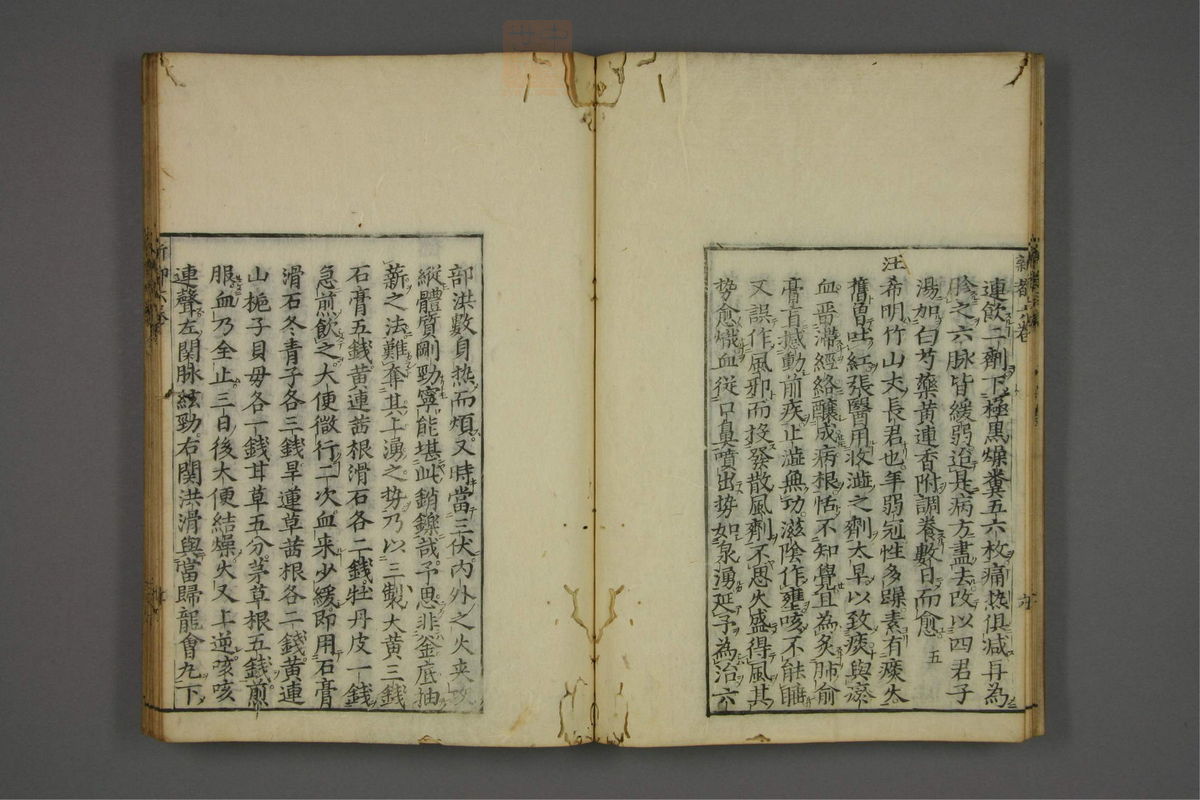 連飲二劑下極黒燥糞五六枚痛热俱减再為
胗之六脉皆緩弱迨其病方盡去改以四君子
湯加白芍藥黄連香附調養數日而愈 五
汪希明竹山丈長君也年弱冠性多躁素有痰火
舊曽吐紅張醫用收澁之劑太早以致痰與瘀
血畱滯經絡醸成病根恬不知覺且為灸肺俞
膏肓撼動前疾止澁無功滋陰作壅咳不能睡
又誤作風邪而投發散風劑不思火盛得風其
势愈熾血従口鼻噴出势如泉湧延予為治六
部洪數身热而煩又時當三伏内外之火夾攻
縱體質剛勁寧能堪此銷鑠哉予思非釜底抽
薪之法難奪其上湧之势乃以三製大黄三錢
石膏五錢黄連茜根滑石各二錢牡丹皮一錢
急煎飲之大便微行二次血来少緩即用石膏
滑石冬青子各三錢旱蓮草茜根各二錢黄連
山梔子貝母各一錢甘草五分茅草根五錢煎
服血乃全止三日後大便結燥火又上逆咳咳
連聲左関脉絃勁右関洪滑與當歸龍會丸下
新都六卷
六